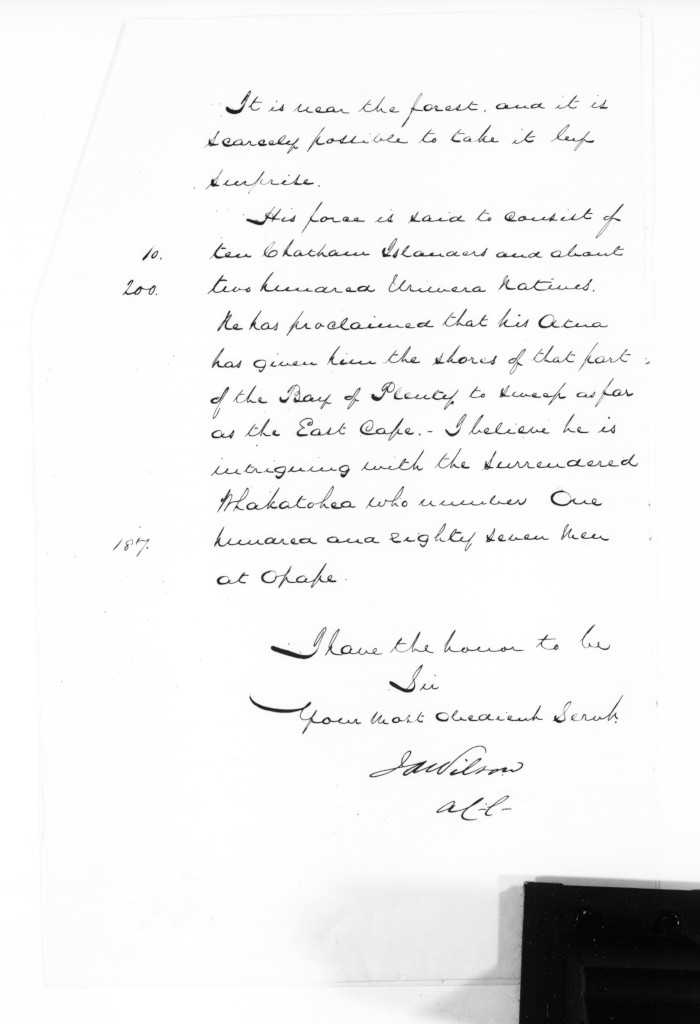 It is near the forest. and it is
scarcely possible to take it by
surprise.
His force is said to consist of
10. ten Chatham Islanders and about
200. two hundred Uriwera Natives.
He has proclaimed that his Atua
has given him the shores of that part
of the Bay of Plenty to sweep as far
as the East Cape. - I believe he is
intriguing with the surrendered
Whakatohea who number One
187. hundred and eighty seven Men
at Opape.
I have the honor to be
Sir
Your Most Obedient Servt.
J A Wilson